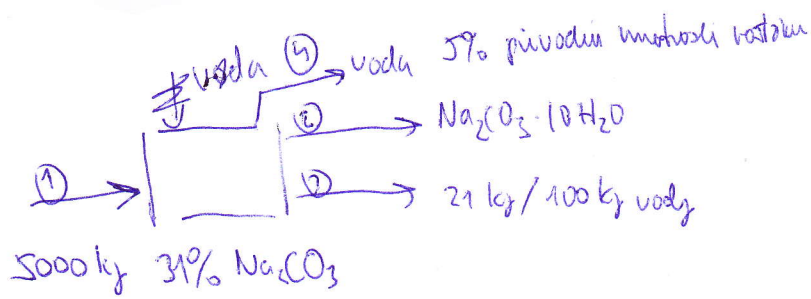 voda ④ voda 5% původní hmotnosti roztoku
② Na₂CO₃·10H₂O
① ③ 21 kg/100 kg vody
5000 kg 31% Na₂CO₃